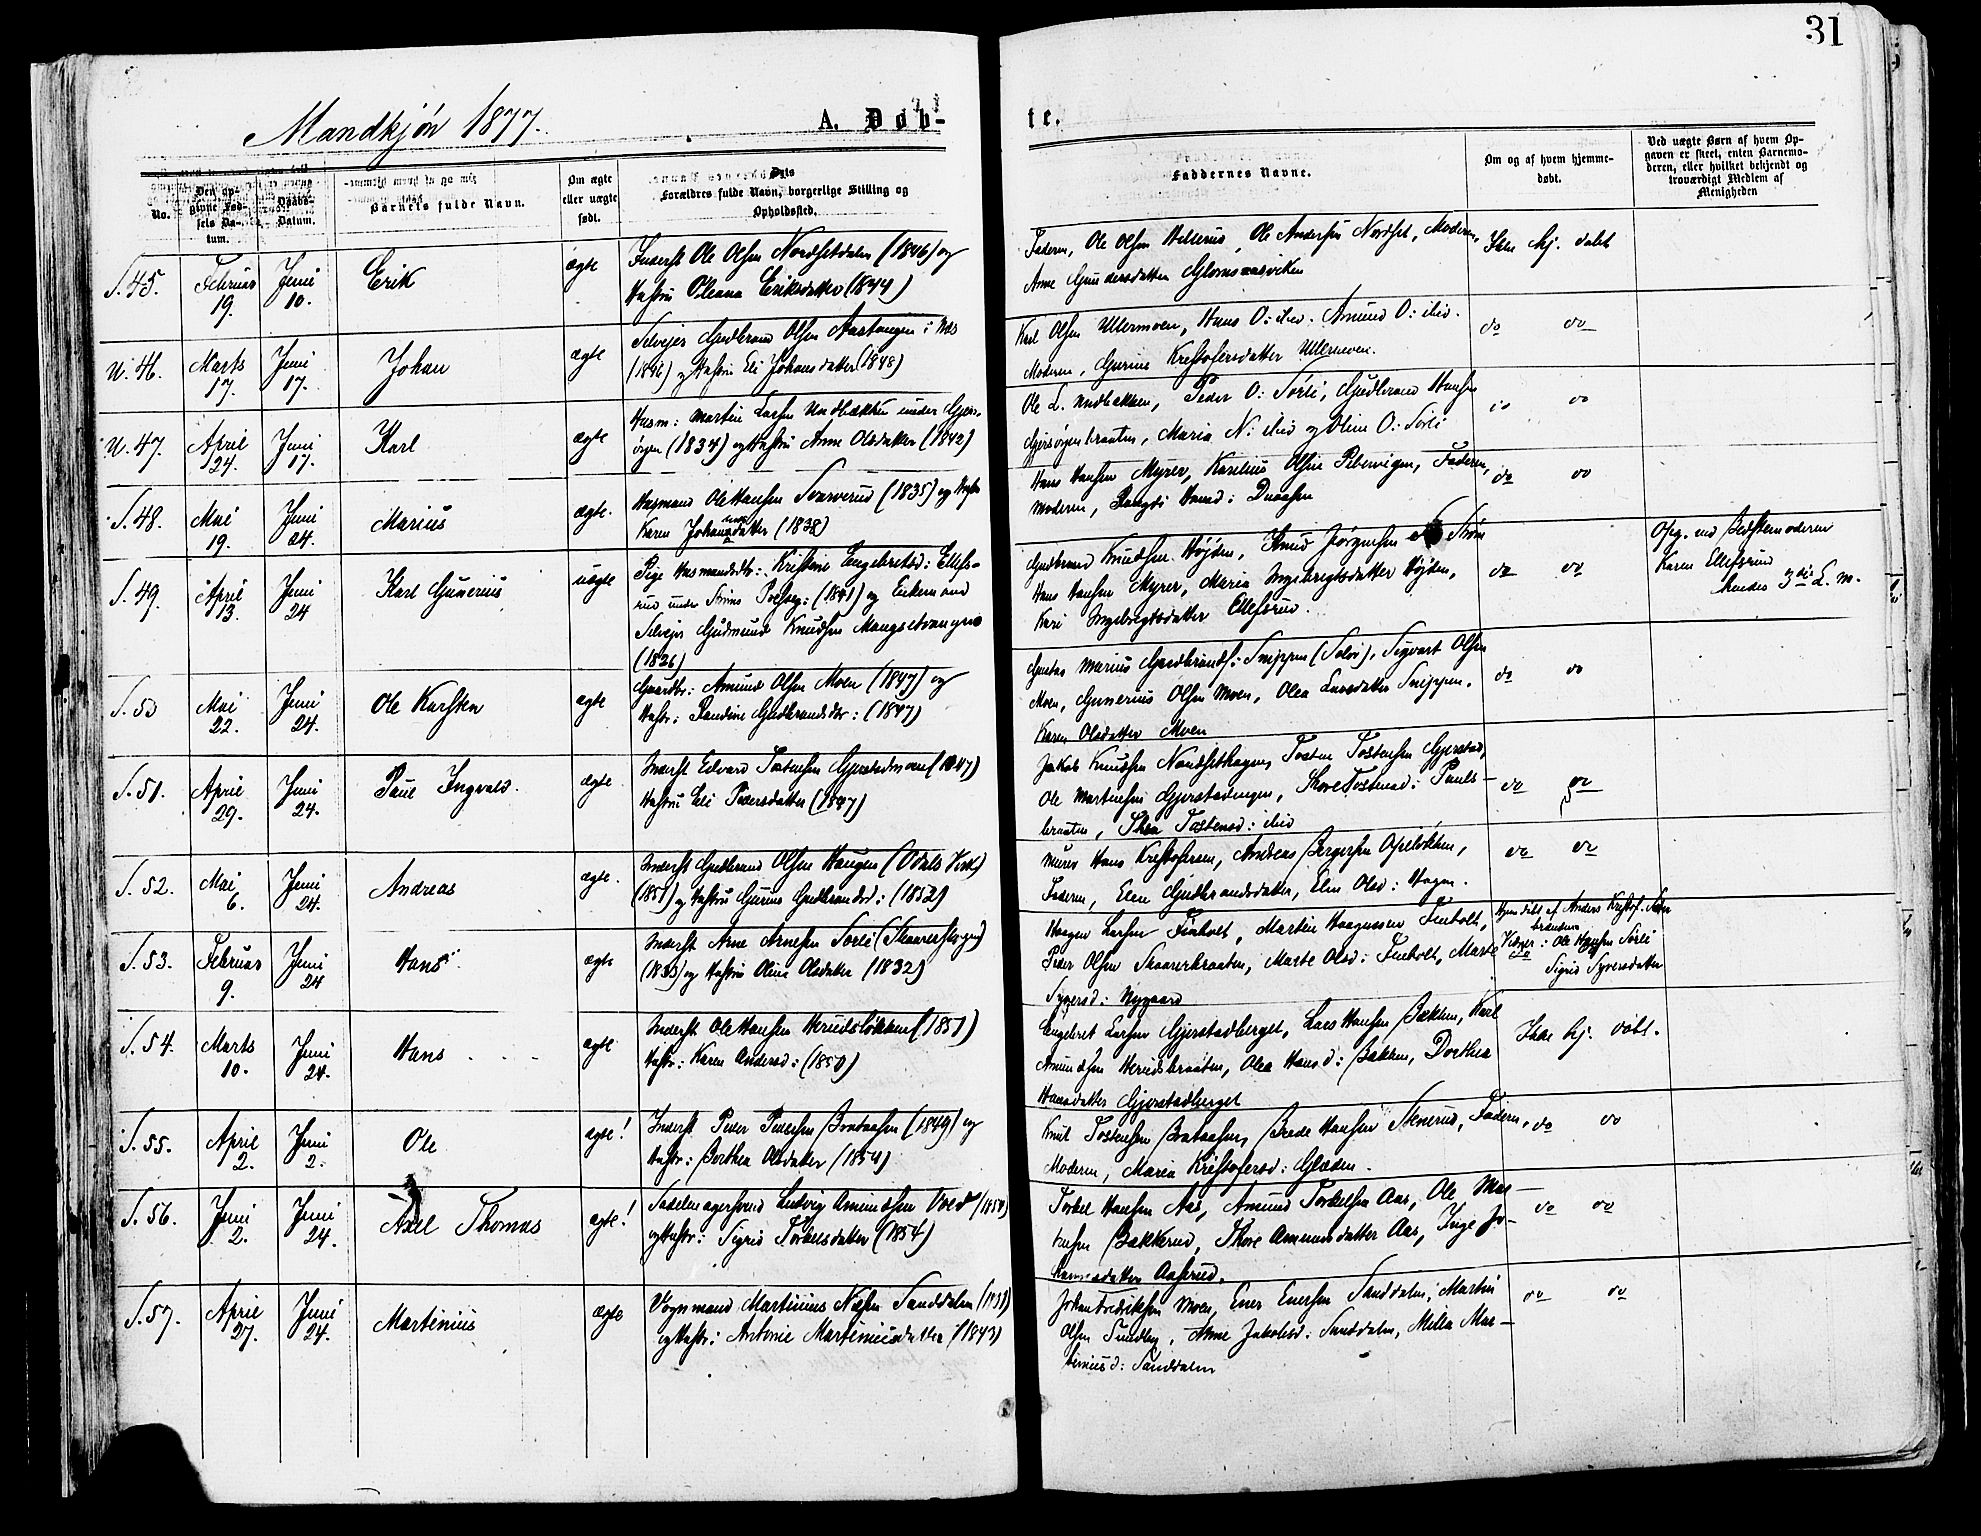 31
Mandkjøn 1877.
A. Døb-
te.
No.
Den op-
givne Fød-
sels Da-
tum.
Daabs-
Datum.
Barnets fulde Navn.
Om ægte
eller uægte
født.
Forældres fulde Navn, borgerlige Stilling og
Opholdssted.
Faddernes Navne.
Om og af hvem hjemme-
døbt.
Ved uægte Børn af hvem Op-
gaven er skeet, enten Barnemo-
deren, eller hvilket bekjendt og
troværdigt Medlem af
Menigheden
S. 45.
Februar
19.
Juni
10.
Erik
ægte
Inderst Ole Olsen Nordsetdalen (1846) og
Hustru Oleana Eriksdatter (1844)
Faderen, Ole Olsen Ole Andersen Nordset, Moderen,
Anne Gundersdatter Glomsaasviken
Ikke hj. døbt
U. 46.
Marts
17.
Juni
17.
Johan
ægte
Selvejer Gudbrand Olsen i Næs
(1846) og Hustru Eli Johansdatter (1848)
Karl Olsen Ullernmoen, Hans O: ibid. Amund O: ibid.
Moderen, Gurine Kristofersdatter Ullernmoen.
do do
U. 47.
April
24.
Juni
17.
Karl
ægte
Husm: Martin Larsen Nordbækken under Gjers-
øgen (1834) og Hustru Anne Olsdatter (1842)
Ole L. Nordbækken, Peder O: Sorli, Gudbrand Hansen
Maria N: ibid og Oline O: Sorli
do do
S. 48.
Mai
19.
Juni
24.
Marius
ægte.
Husmand Ole Hansen Svarverud (1835) og Hustru
Karen Johannesdatter (1838)
Hans Hansen Myrer, Karelius Olsen Pibervigen, Faderen,
Moderen,
do do
S. 49.
April
13.
Juni
24
Karl Gunerius
uægte
Pige Husmandsdtr: Kristine Engebretsd: Ellefs-
rud under Strøms Præsteg: (1841) og Enkemand
Selvejer Gudmund Knudsen Mangset
(1826)
Gudbrand Knudsen Højden, Knud Jørgensen Strøm
Hans Hansen Myrer, Maria Ingebregtsdatter Højden,
Kari Ingebregtsdatter Ellefsrud.
do do
Opg. ved Bedstemoderen
Karen Ellefsrud
S. 50
Mai
22.
Juni
24.
Ole Karsten
ægte
Gaardbr: Amund Olsen Moen (1847) og
Hustr: Randine Gudbrandsdtr: (1847)
Gustav Marius Gudbrands: Snippen (Solør), Sigvart Olsen
Moen, Gunerius Olsen Moen, Olea Larsdatter Snippen.
Karen Olsdatter Moen
do do
S. 51.
April
29.
Juni
24.
Paul Ingvald.
ægte
Inderst Edvard Tostensen Gjerstadmoen (1847)
Hustru Eli Pedersdatter (1847)
Jakob Knudsen Nordsethagen, Tosten Tostensen Gjerstad,
Ole Martinsen Gjerstadengen, Thore Tostensd: Pauls-
braaten, Thea Tostensd: ibid
do do
S. 52.
Mai
6.
Juni
24.
Andreas
ægte.
Inderst Gudbrand Olsen Haugen (Odals Værk)
(1851) og Hustru Gurine Gudbrandsd: (1852)
Murer Hans Kristofersen, Andreas Bergersen
Faderen, Elen Gudbrandsdatter, Elen Olsd: Hagen.
do do
S. 53.
Februar
9.
Juni
24
Hans
ægte
Inderst Arne Arnesen Sorli (Skaarersbygd)
(1833) og Hustru Oline Olsdatter (1832)
Haagen Larsen Finholt, Martin Haagensen Finholt,
Peder Olsen Skaarerbraaten, Marte Olsd: Finholt, Marte
Syversd: Nygaard
Hjemdøbt af Anders Kristof.
Vidner: Ole Hansen Sorli
Sigrid Syversdatter
S. 54.
Marts
10.
Juni
24.
Hans
ægte
Inderst Ole Hansen Herudsløkken (1851)
Hustr: Karen Andersd: (1850)
Engebret Larsen Gjerstadberget, Lars Hansen Bækken, Karl
Amundsen Herudsbraaten, Olea Hansd: Bækken, Dorthea
Hansdatter Gjerstadberget
Ikke hj. døbt.
S. 55.
April
2.
Juni
2.
Ole
ægte!
Inderst Peder Pedersen Brataasen (1849) og
Hustr: Berthea Olsdatter (1854)
Knut Tostensen Brataasen, Brede Hansen Skinerud, Faderen,
Moderen, Maria Kristofersd: Glæden.
do do
S. 56.
Juni
2.
Juni
24.
Axel Thomas
ægte!
Sadelmagersvend Ludvig Amundsen Vold (1850)
og Hustr: Sigrid Torkelsdatter (1854)
Torkel Hansen Aas, Amund Torkelsen Aas, Ole Mar-
tinsen Bakkerud, Thore Amundsdatter Aas, Inge Jo-
hannesdatter Aaserud.
do do
S. 57.
April
27.
Juni
24.
Martinius
ægte
Vognmand Martinius Sanddalen
og Hustr: Antonie Martiniusdatter (1843)
Johan Fredriksen Moen, Ener Enersen Sanddalen, Martin
Olsen Sundby, Anne Jakobsd: Sanddalen, Milla Mar-
tiniusd: Sanddalen
do do